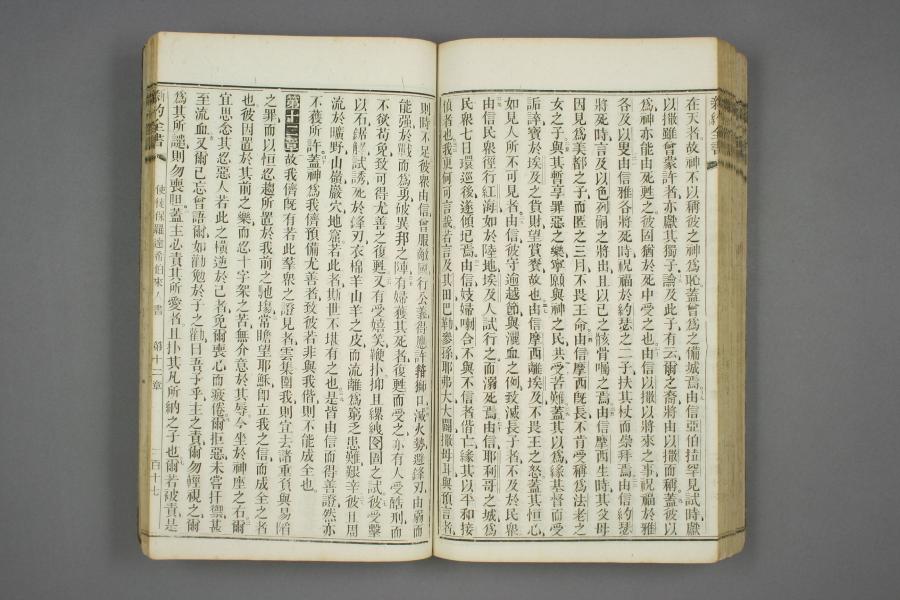 新約全書
在天者故神不以稱彼之神爲恥蓋曾爲之備城焉由信亞伯拉罕見試時獻
以撒雖曾蒙許者亦獻其獨子論及此子有云爾之裔將由以撒而稱蓋彼以
爲神亦能由死甦之彼固猶於死中受之也由信以撒以將來之事祝福於雅
各及以叟由信雅各將死時祝福於約瑟之二子扶其杖而崇拜焉由信約瑟
將死時言及以色列嗣之將出且以己之骸骨囑之焉由信摩西生時其父母
因見爲美都之子而匿之三月不畏王命由信摩西旣長不肯受稱爲法老之
女之子與其暫享罪惡之樂寧願與神之民共受苦難蓋其以爲緣基督而受
詬誶寶於埃及之貨財望賞賚故也由信摩西離埃及不畏王之怒蓋其恒心
如見人所不可見者由信彼守逾越節與灑血之例致滅長子者不及於民衆
由信民衆徑行紅海如於陸地埃及人試行之而溺死焉由信耶利哥之城爲
民衆七日環巡後遂傾圮焉由信妓婦喇合不與不信者偕亡緣其以平和接
偵者也我更何可言哉若言及其田巴勒參孫耶弗大大闢撒母耳與預言者
則時不足彼衆由信曾服敵國行公義得應許箝獅口滅火勢避鋒刃由弱而
能强於戰而爲勇破異邦之陣有婦獲其死者復甦而受之亦有人受酷刑而
不欲苟免致可得尤善之復甦又有受嬉笑鞭扑抑且縲絏囹圄之試彼受擊
以石鋸解試誘死於鋒刃衣棉羊山羊之皮而流離爲窮乏患難艱辛彼且周
流於曠野山嶺巖穴地窟若此者斯世不堪有之也是皆由信而得善證然亦
不獲所許蓋神爲我儕預備尤善者致彼若非與我偕則不能成全也
第十二章故我儕旣有若此羣衆之證見者雲集圍我則宜去諸重負與易陷
之罪而以恒忍趨所置於我前之馳塲常瞻望耶穌卽立我之信而成全之者
也彼因置於其前之樂而忍十字架之苦無介意於其辱今坐於神座之右爾
宜思念其忍惡人若此之橫逆於己者免爾喪心而疲倦爾拒惡未嘗扞禦甚
至流血又爾已忘曾語爾如勸勉於子之勸曰吾子乎主之責爾勿輕視之爾
爲其所譴則勿喪胆蓋主必責其所愛者且扑其凡所納之子也爾若被責是
新約全書 使徒保羅達希伯來人書 第十二章 二百十七